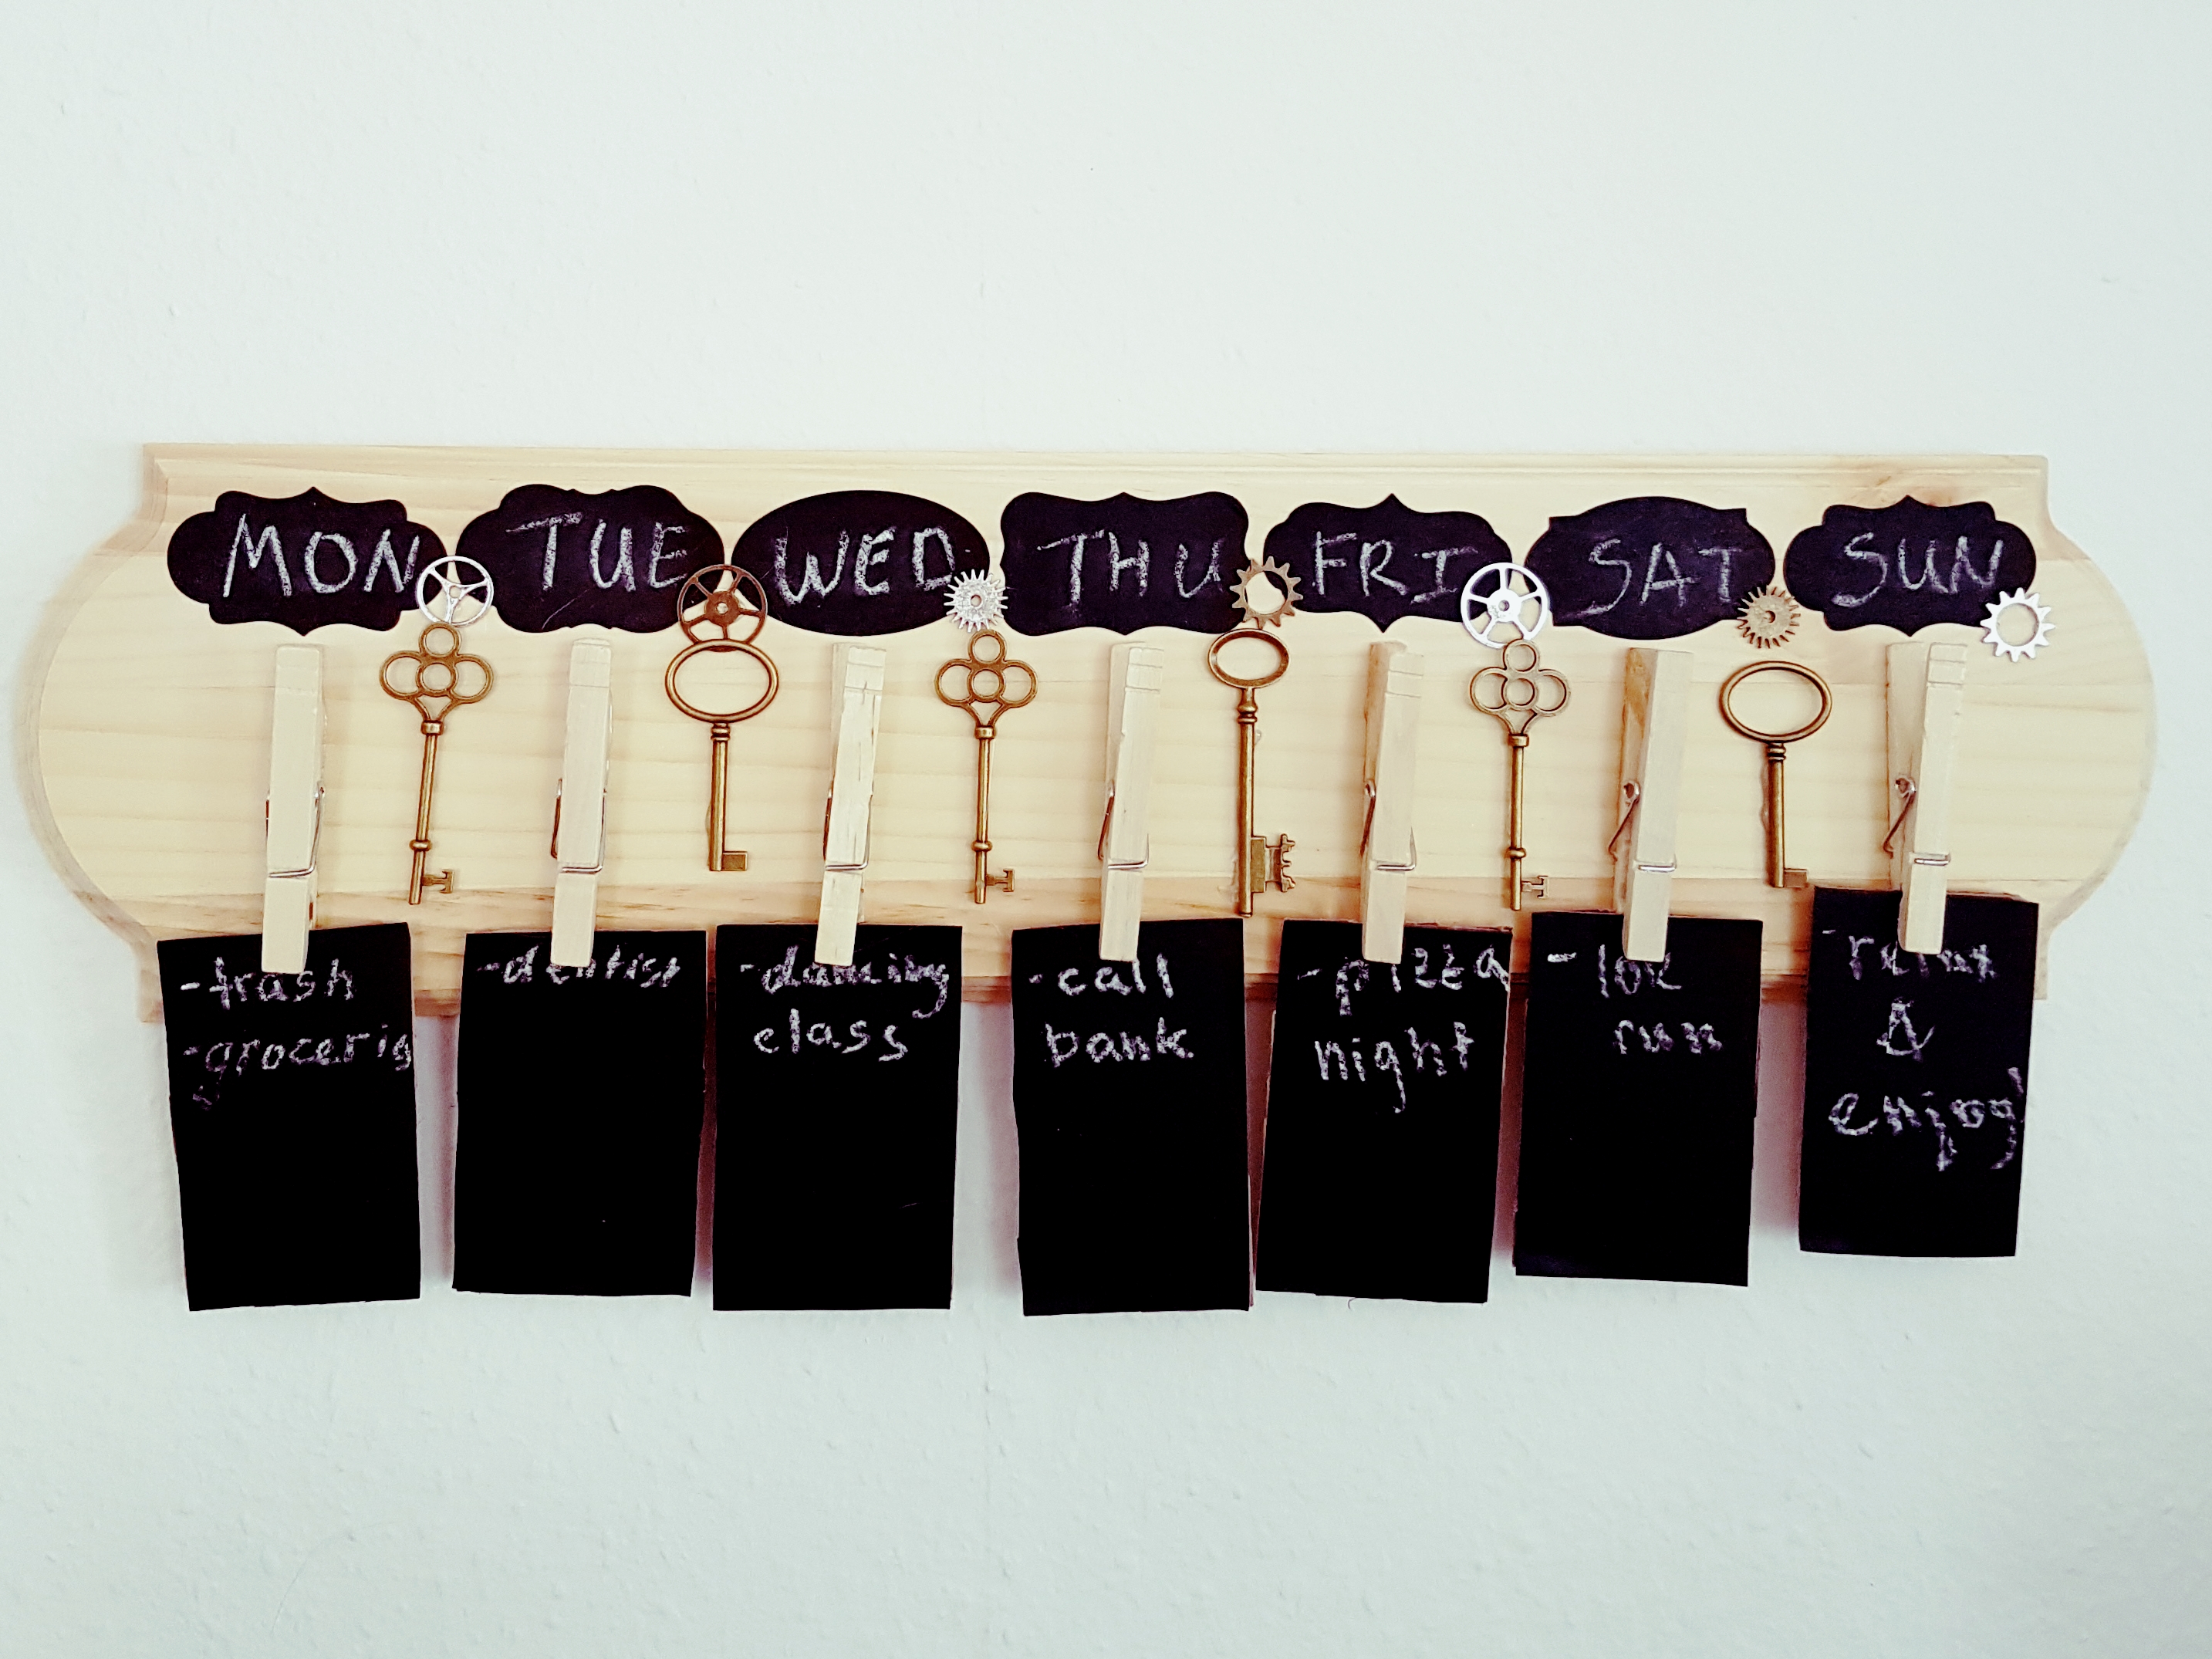 MON TUE WED THU FRI SAT SUN
-trash
-groceris
-dentist
-dancing
class
-call
bank
-pizza
night
- 10k
run
-relax
&
enjoy!